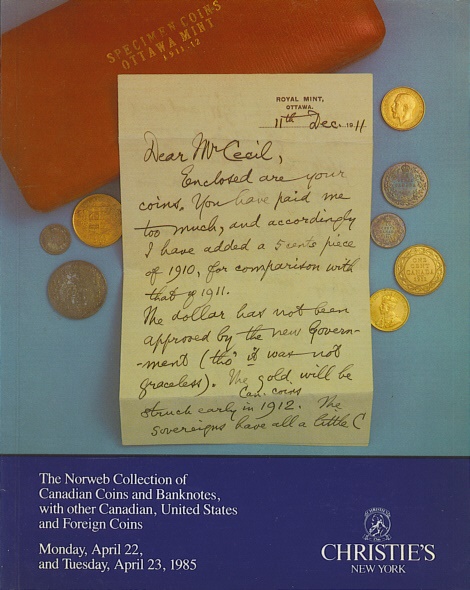 SPECIMEN COINS
OTTAWA MINT
1911-12
ROYAL MINT,
OTTAWA.
11th Dec. 1911
Dear Mr Cecil,
Enclosed are your
coins. You have paid me
too much, and accordingly
I have added a 5 cents piece
of 1910, for comparison with
that of 1911.
The dollar has not been
approved by the new Govern-
-ment (tho' it was not
graceless). The gold will be
Can. coins
struck early in 1912. The
sovereigns have all a little C
ONE
CENT
CANADA
1911
The Norweb Collection of
Canadian Coins and Banknotes,
with other Canadian, United States
and Foreign Coins
Monday, April 22,
and Tuesday, April 23, 1985
CHRISTIE'S
NEW YORK